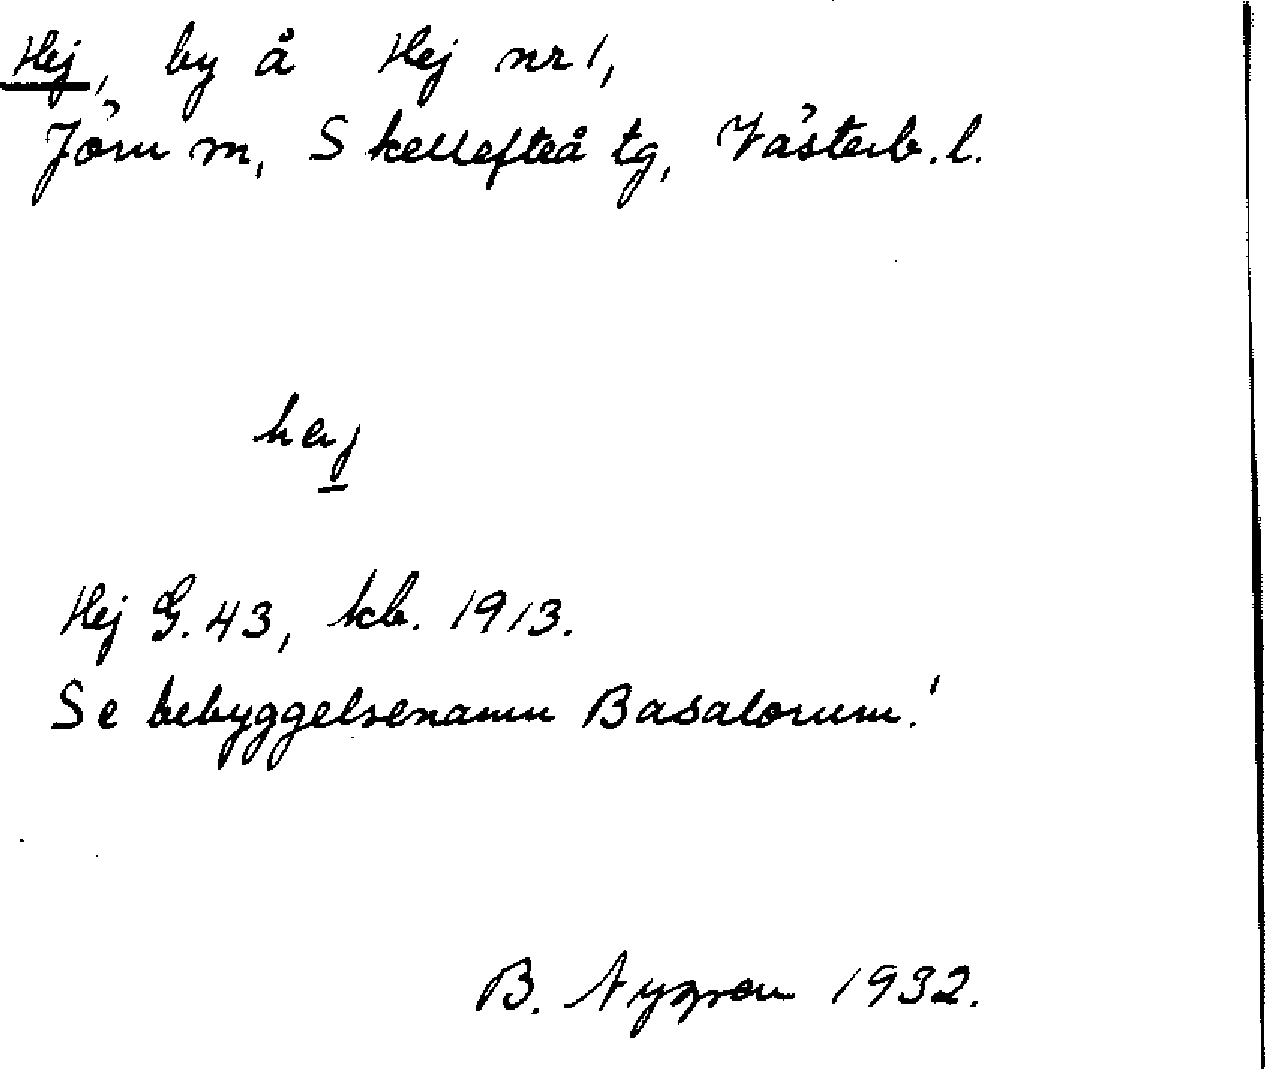 Hej, by å Hej nr 1,
Jörn m, Skellefteå tg, Västerb. l.
hej
Hej G. 43, kb. 1913.
Se bebyggelsenamn Basalorum!
B. Nygren 1932.